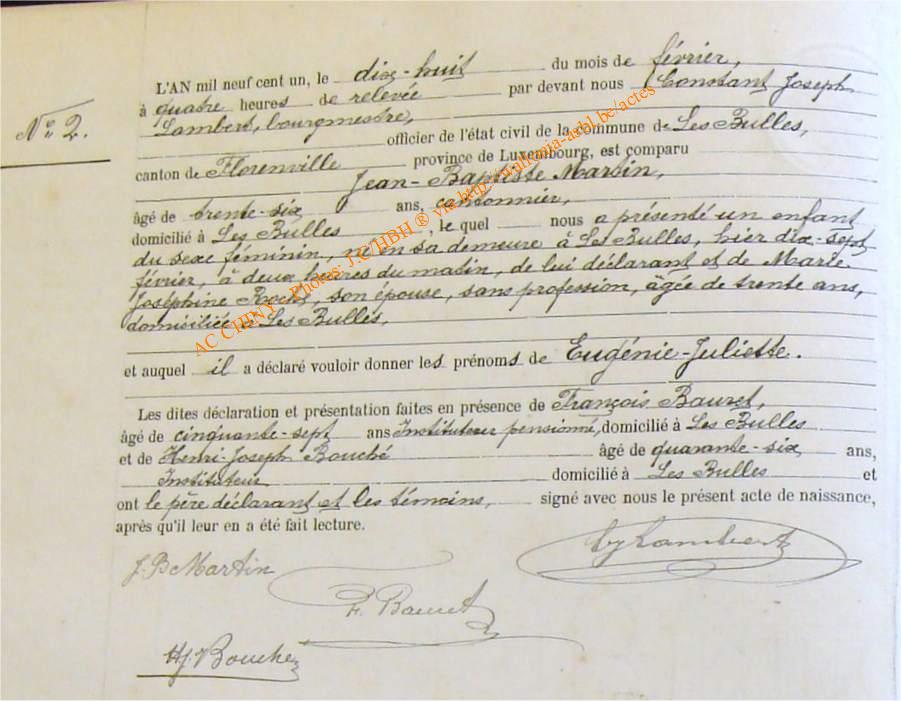 N° 2.
L'AN mil neuf cent un, le dix-huit du mois de février,
à quatre heures de relevée par devant nous Constant Joseph
Lambert, bourgmestre,
officier de l'état civil de la commune de Les Bulles,
canton de Florenville province de Luxembourg, est comparu
Jean-Baptiste Martin,
âgé de trente-six ans, cantonnier,
domicilié à Les Bulles, le quel nous a présenté un enfant
du sexe féminin, né en sa demeure à Les Bulles, hier dix-sept
février, à deux heures du matin, de lui déclarant et de Marie
Joséphine son épouse, sans profession, âgée de trente ans,
domiciliée à Les Bulles,
et auquel il a déclaré vouloir donner les prénoms de Eugénie-Juliette.
Les dites déclaration et présentation faites en présence de François Bauret,
âgé de cinquante-sept ans Instituteur pensionné, domicilié à Les Bulles
et de Henri-Joseph Bouché âgé de quarante-six ans,
Instituteur domicilié à Les Bulles et
ont le père déclarant et les témoins, signé avec nous le présent acte de naissance,
après qu'il leur en a été fait lecture.
J. B Martin
Lambert
F. Bauret
HJ. Bouché
AC CHINY - Photos: J.C HBH ® via